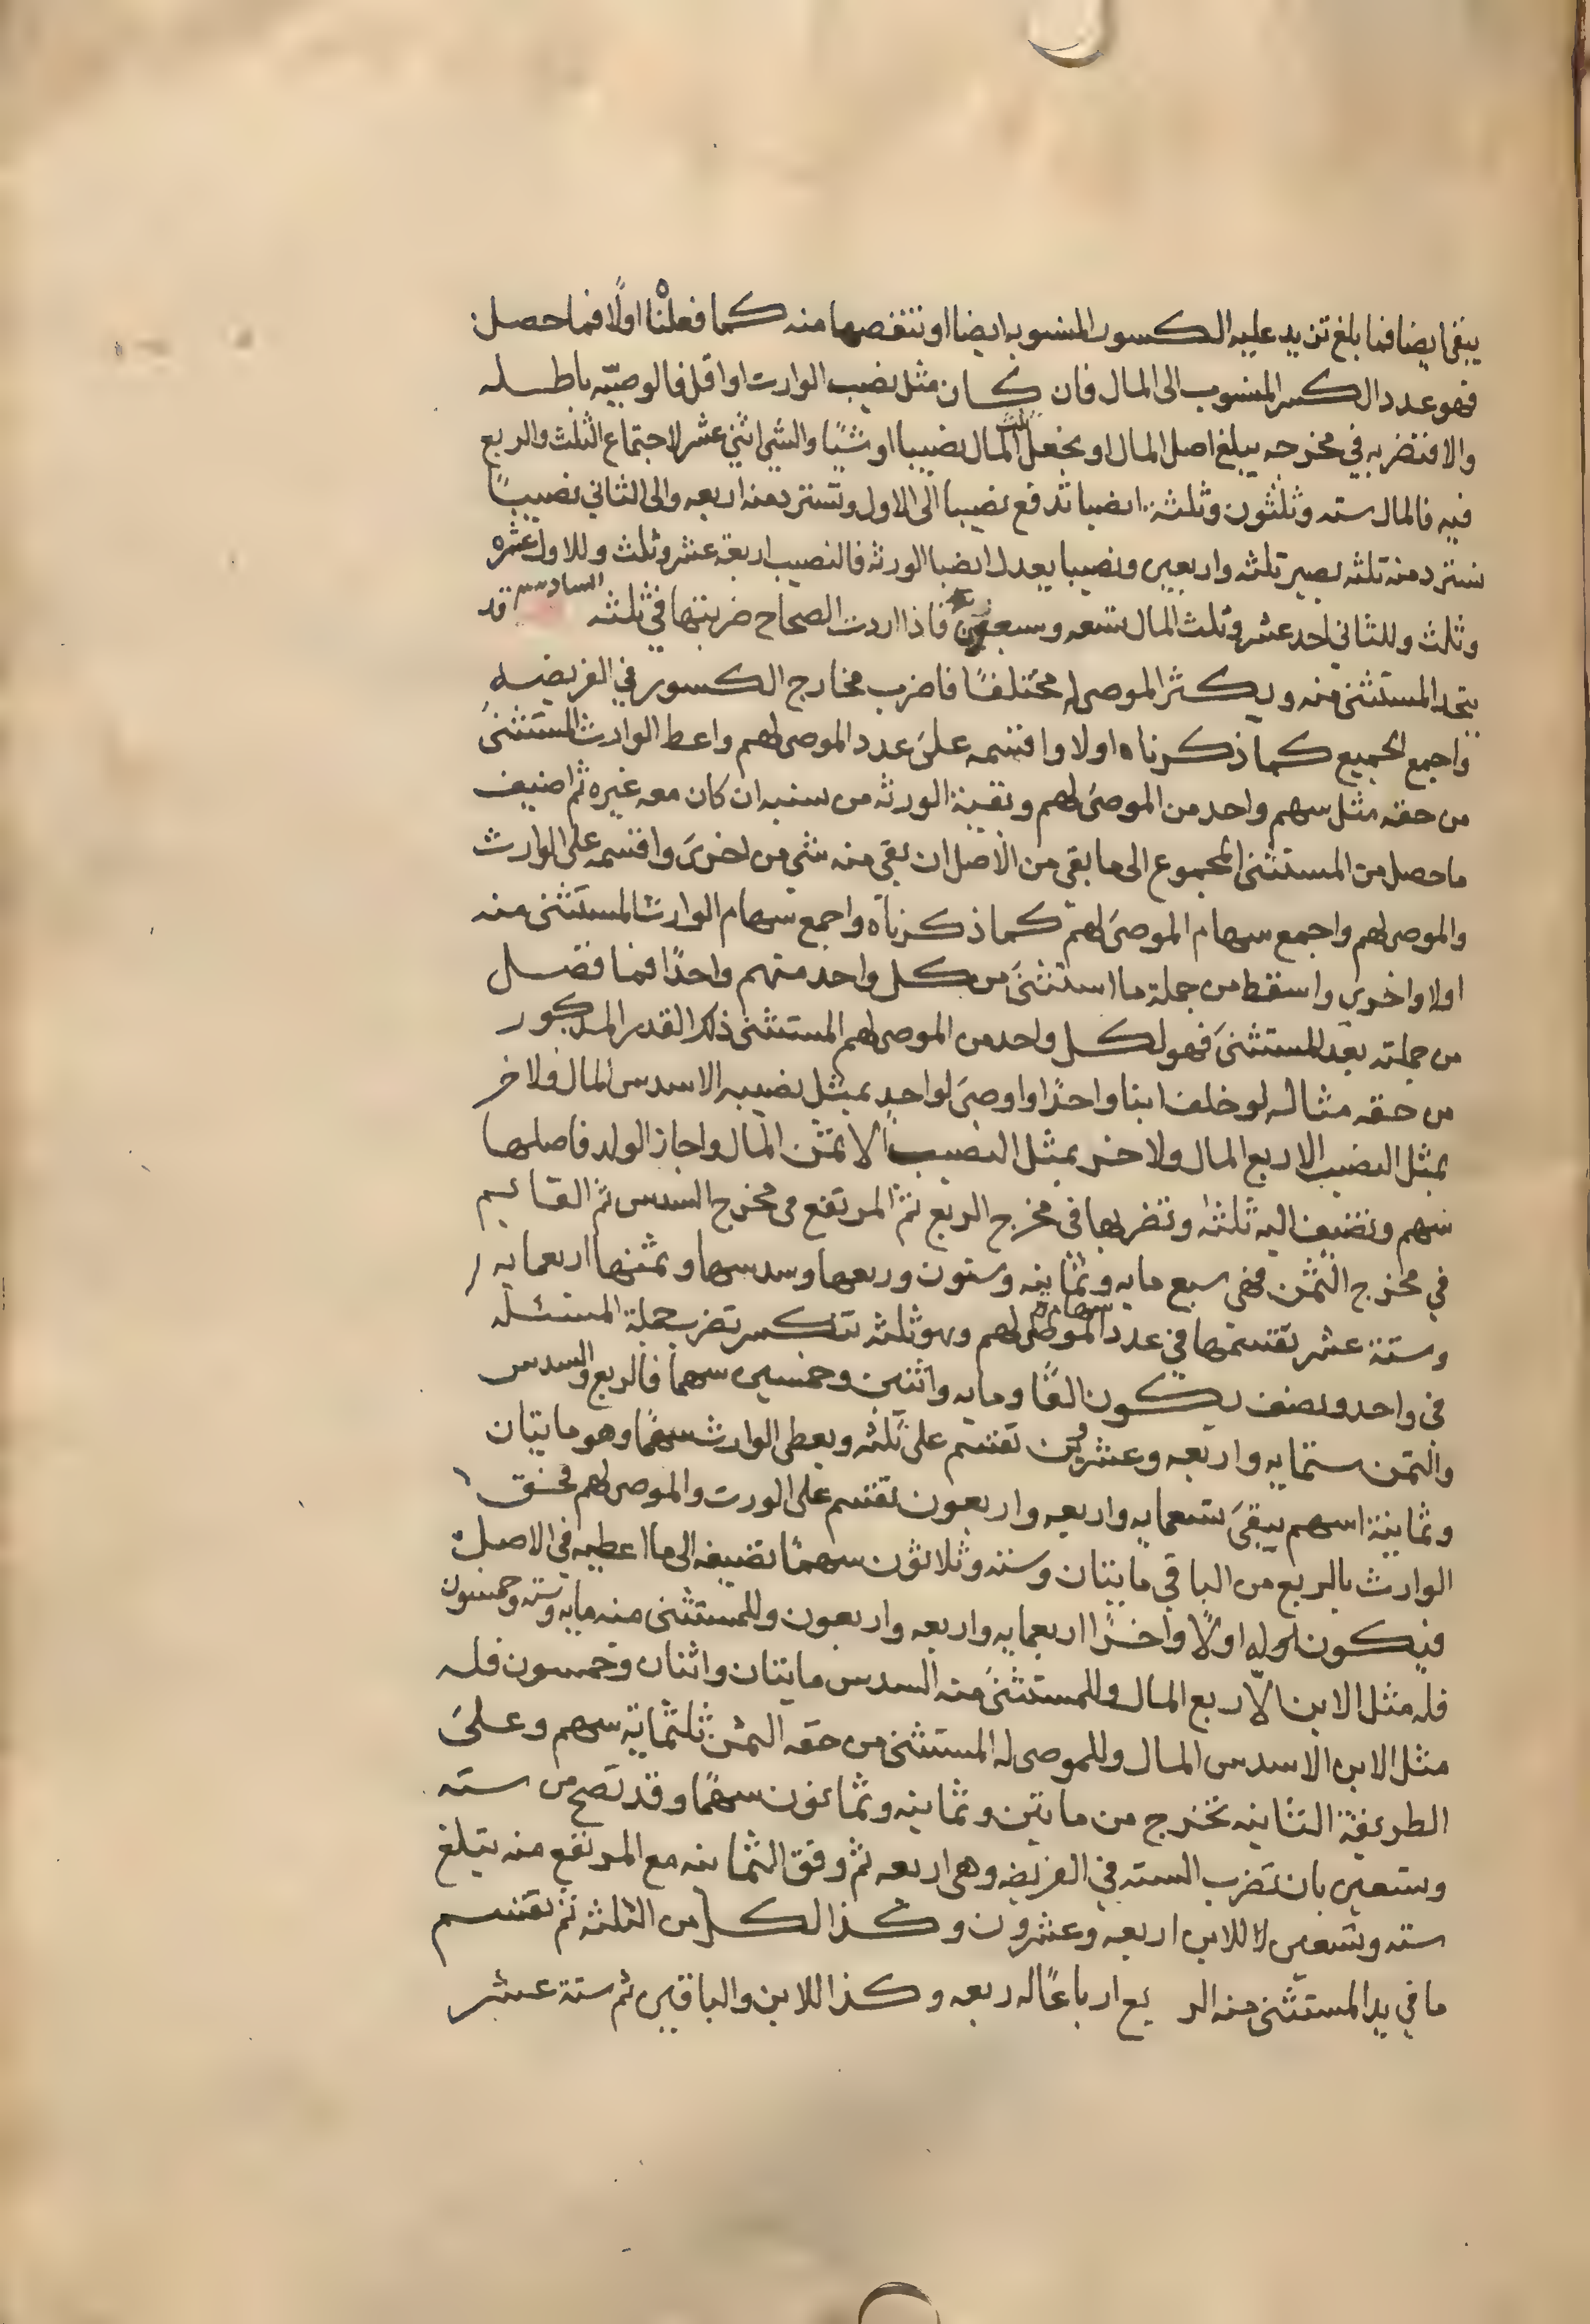 يبقى ايضا فما بلغ تزيد عليه الكسور المنسوبه ايضا او تنقصها منه كما فعلنا اولًا فما حصل
فهو عدد الكسر المنسوب الى المال فان كان مثل نصيب الوارث او اقل فالوصيّه باطله
والا فتضربه في مخرجه يبلغ اصل المال او نجعل ثلث المال نصيبا وشيًا والشي اثني عشر لاجتماع الثلث والربع
فيه فالمال سته وثلثون وثلثة انصبا تدفع نصيبا الى الاول وتسترد منه اربعه والى الثاني نصيبًا
تسترد منه ثلثه يصير ثلثه واربعين ونصيبا يعدل انصبا الورثه فالنصيب اربعة عشر وثلث وللاول عشره
وثلث وللثاني احد عشر وثلث المال تسعه وسبعون فاذا اردت الصحاح ضربتها في ثلثه السادس قد
يتحد المستثنى منه ويكثر الموصى له مختلفًا فاضرب مخارج الكسور في الفريضه
واجمع الجميع كما ذكرناه اولا واقسمه على عدد الموصى لهم واعط الوارث المستثنى
من حقه مثل سهم واحد من الموصى لهم وبقية الورثه من سنبه ان كان معه غيره ثم اضيف
ما حصل من المستثنى المجموع الى ما بقي من الاصل ان بقي منه شي من اخرى واقسمه على الوارث
والموصى لهم واجمع سهام الموصى لهم كما ذكرناه واجمع سهام الوارث المستثنى منه
اولا واخرى واسقط من جملة ما استثنى من كل واحد منهم واحدًا فما فضل
من جملته بعد المستثنى فهو لكل واحد من الموصى لهم المستثنى ذلك القدر المذكور
من حقه مثاله لو خلف ابنا واحدًا واوصى لواحد بمثل نصيبه الا سدس المال ولاخر
بمثل النصيب الا ربع المال ولاخر بمثل النصيب الا ثمن المال واجاز الولد فاصلها
سهم وتضيف اليه ثلثه وتضربها في مخرج الربع ثم المرتفع في مخرج السدس ثم القايم
في مخرج الثمن فهي سبع مايه وثمانيه وستون وربعها وسدسها وثمنها اربعمايه
وستة عشر تقسمها في عدد سهام الموصى لهم وهو ثلثه تنكسر تضرب جملة المسئله
في واحد ونصف يكون الفًا ومايه واثنين وخمسين سهما فالربع والسدس
والثمن ستمايه واربعه وعشرون تقسم على ثلثه ويعطى الوارث سهمًا وهو مايتان
وثمانية اسهم يبقى سبعمايه واربعه واربعون تقسم على الورث والموصى لهم فحق
الوارث بالربع من الباقي مايتان وسته وثلاثون سهمًا تضيفه الى ما اعطيه في الاصل
فيكون له اولًا واخرًا اربعمايه واربعه واربعون وللمستثنى منه مايه وسته وخمسون
فله مثل الابن الا ربع المال وللمستثنى منه السدس مايتان واثنان وخمسون فله
مثل الابن الا سدس المال وللموصى له المستثنى من حقه الثمن ثلثماية سهم وعلى
الطريقة الثانيه تخرج من مايتين وثمانيه وثمانون سهمًا وقد تصح من سته
وتسعين بان تضرب السته في الفريضه وهي اربعه ثم وفق الثمانيه مع المرتفع منه يبلغ
سته وتسعين للابن اربعه وعشرون وكذا لكل من الثلثه ثم تقسم
ما في يد المستثنى منه الر بع ارباعًا له ربعه وكذا للابن والباقين ثم ستة عشر